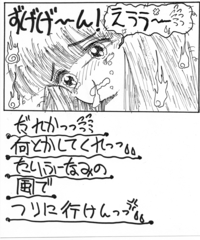 ずげげ〜ん!
えううう〜
だれかっっ
何とかしてくれっっ
たいふーなみの
風で
つりに行けんっっ